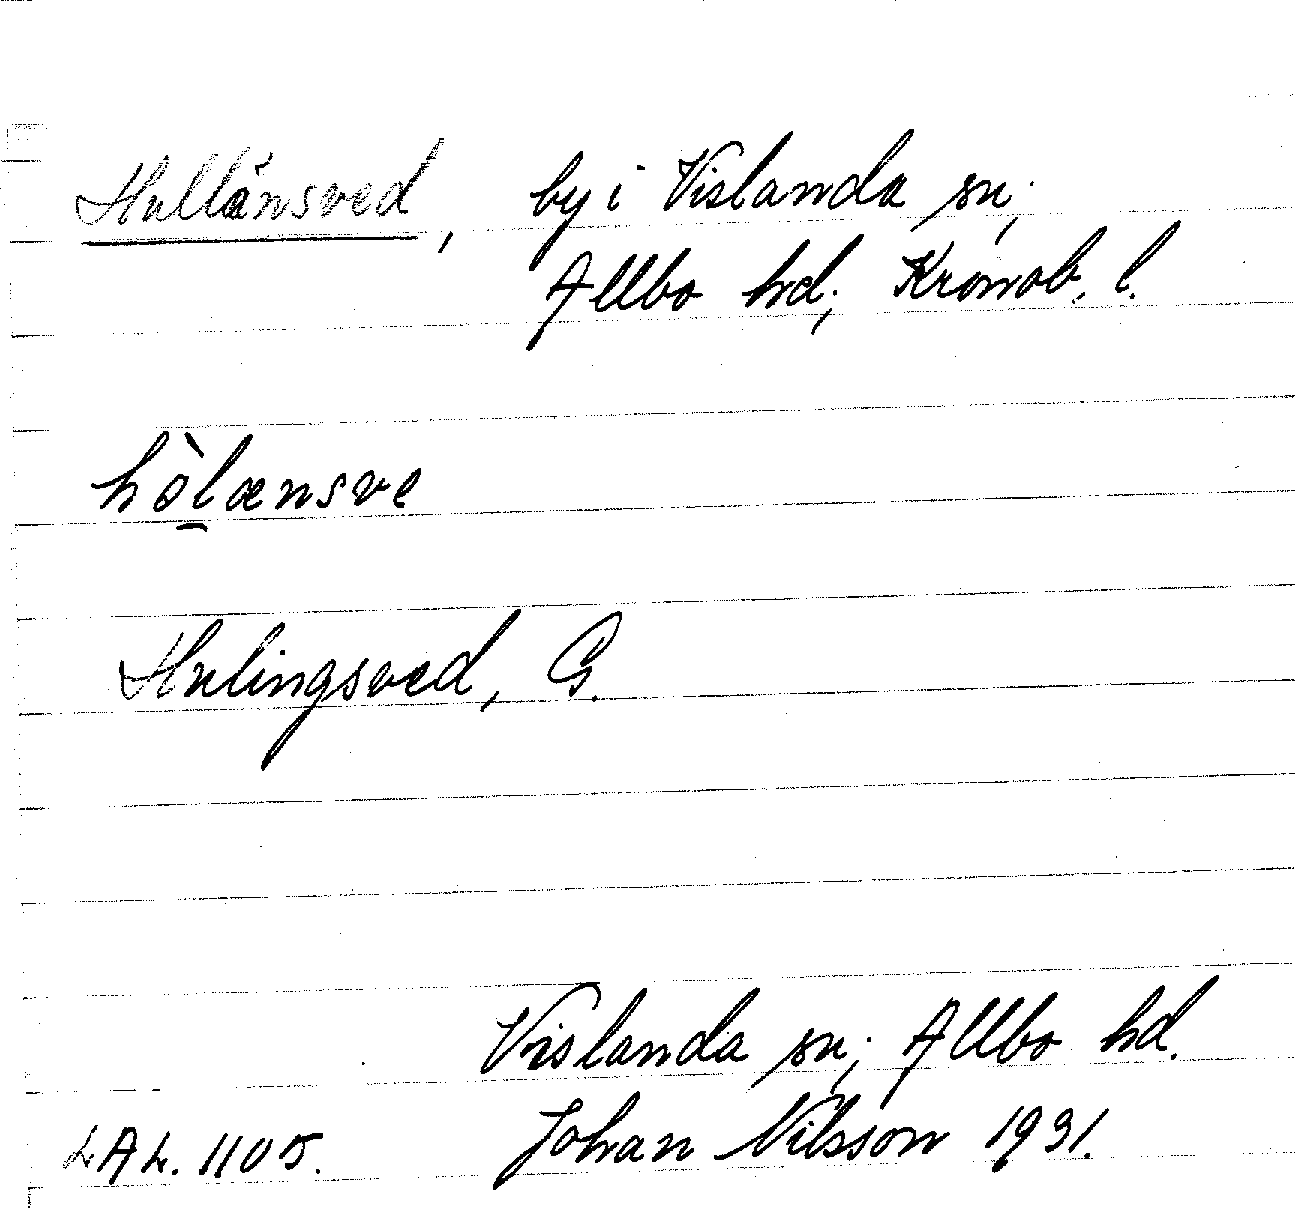 Hullänsved, by i Vislanda sn,
Allbo hd, Kronob. l.
hòlænsve
Hulingsved, G.
Vislanda sn, Allbo hd.
LAL. 1105. Johan Nilsson 1931.